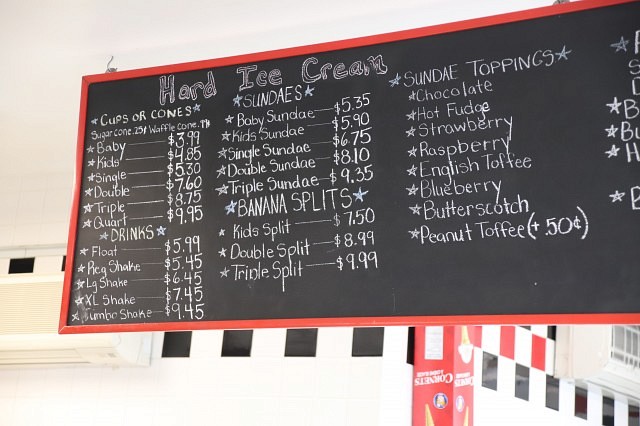 Hard Ice Cream
★CUPS OR CONES★
Sugar cone .25¢ Waffle Cone .99
★Baby $3.99
★Kids $4.85
★Single $5.30
★Double $7.60
★Triple $8.75
★Quart $9.95
★DRINKS★
★Float $5.99
★Reg Shake $5.45
★Lg Shake $6.45
★XL Shake $7.45
★Jumbo Shake $9.45
★SUNDAES★
★Baby Sundae $5.35
★Kids Sundae $5.90
★Single Sundae $6.75
★Double Sundae $8.10
★Triple Sundae $9.35
★BANANA SPLITS★
★Kids Split $7.50
★Double Split $8.99
★Triple Split $9.99
★SUNDAE TOPPINGS★
★Chocolate
★Hot Fudge
★Strawberry
★Raspberry
★English Toffee
★Blueberry
★Butterscotch
★Peanut Toffee (+.50¢)
CORNETS